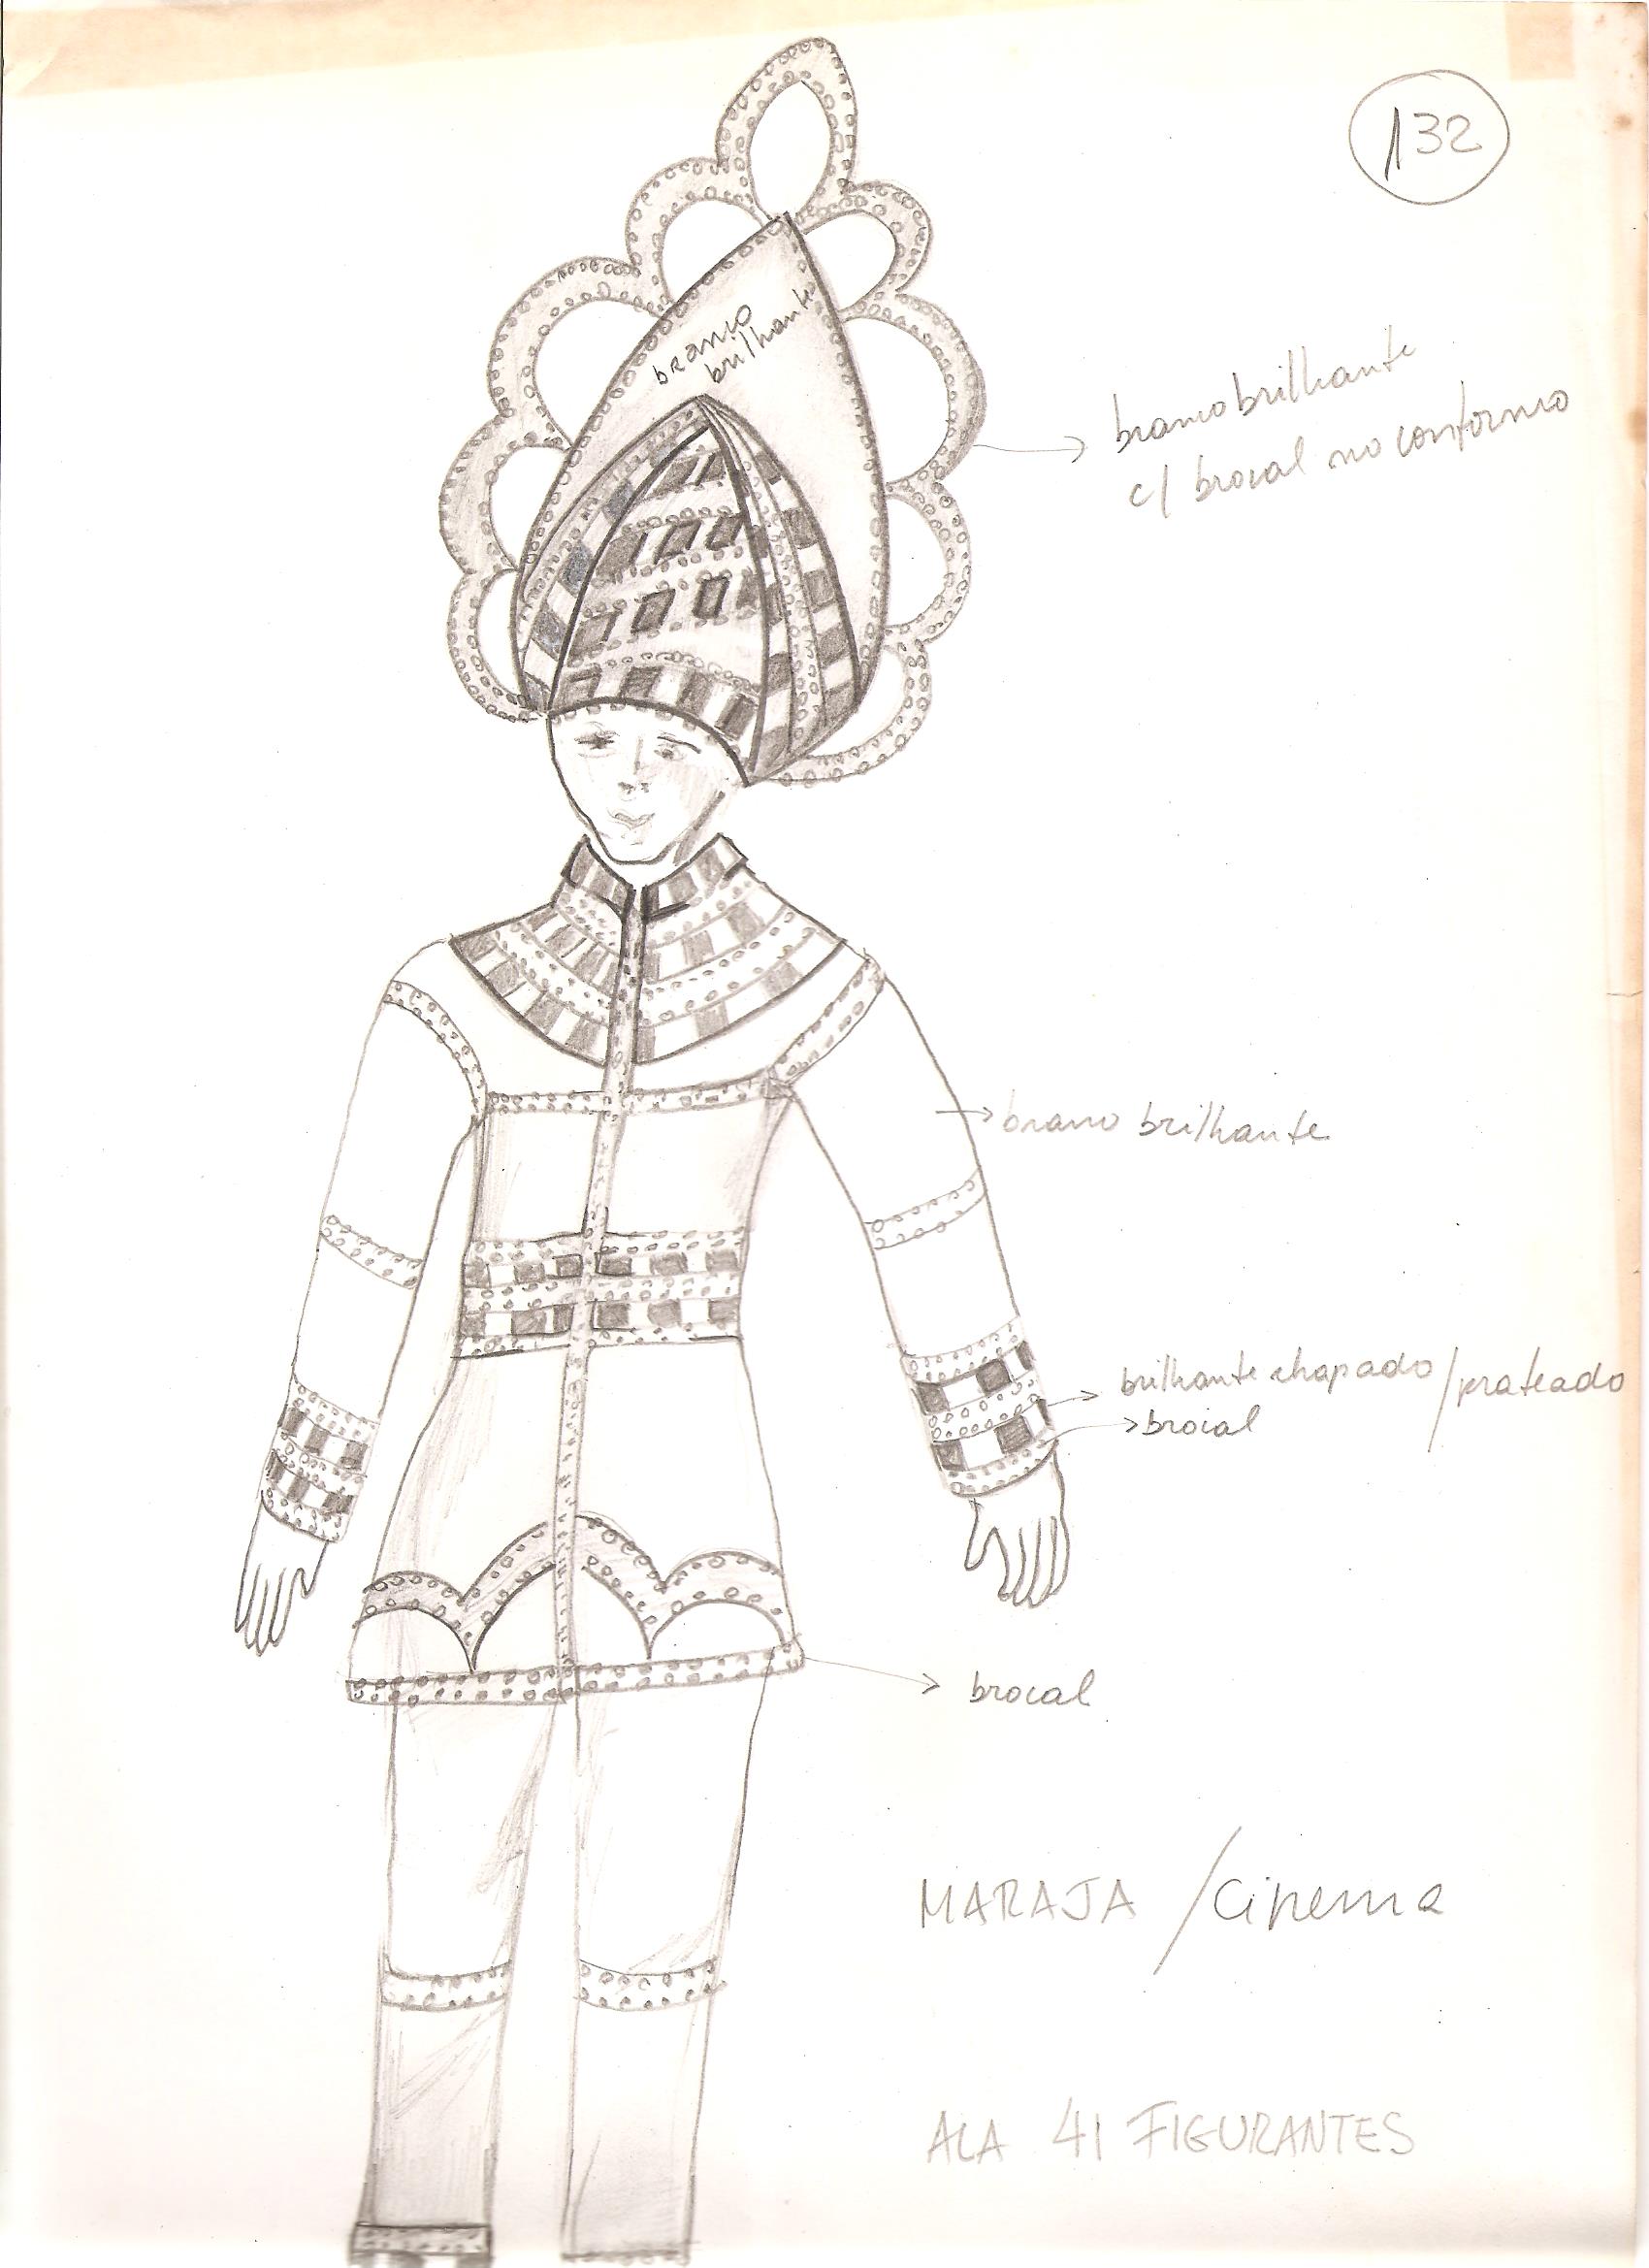 132
branco
brilhante
branco brilhante
c/ brocal no contorno
branco brilhante
brilhante chapado/prateado
brocal
brocal
MARAJA / Cinema
ALA 41 FIGURANTES